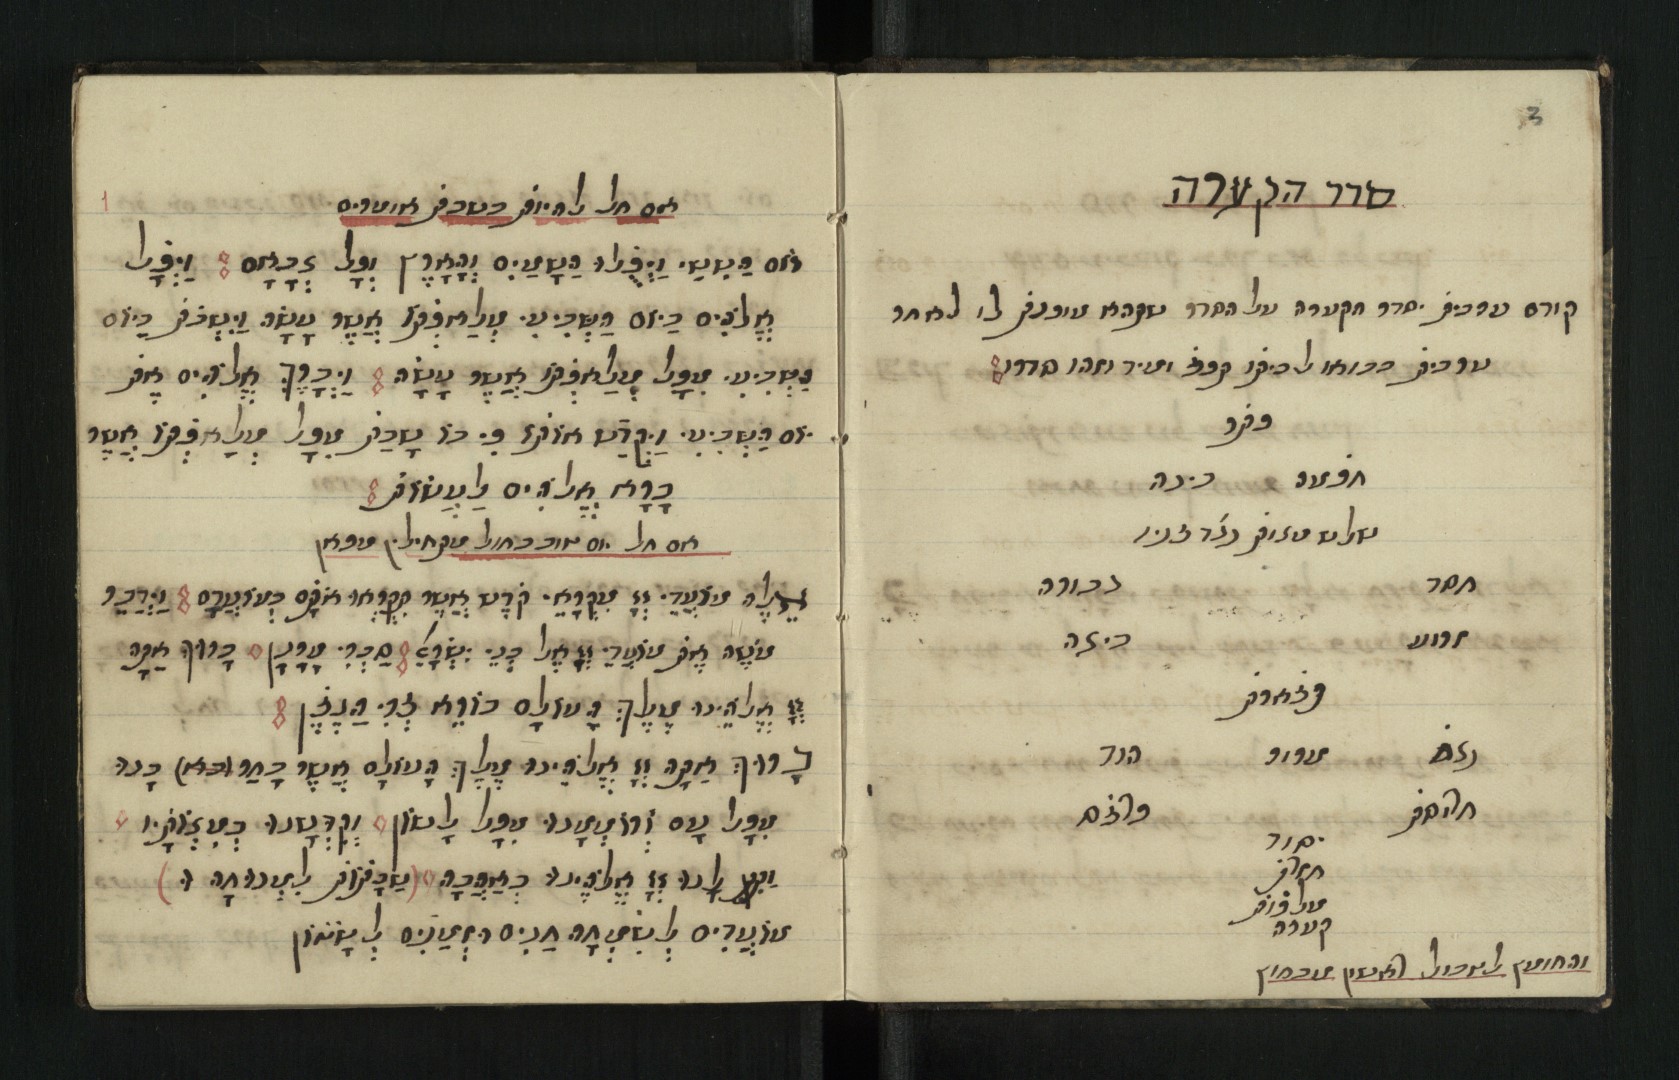 3
סדר הקערה
קודם ערבית יסדר הקערה על הסדר שתהא מוכנת לו לאחר
ערבית בבואו לביתו תכף ומיד וזהו סדרו
כתר
חכמה בינה
שלש מצות נגד
חסד גבורה
זרוע ביצה
תפארת
נצח מרור הוד
חרוסת כרפס
יסוד
חזרת
מלכות
קערה
והחומץ לטבול ראשון מבחוץ
1
אם חל להיות בשבת אומרים
יום הששי ויכלו השמים והארץ וכל צבאם ויכל
אלהים ביום השביעי מלאכתו אשר עשה וישבת ביום
השביעי מכל מלאכתו אשר עשה ויברך אלהים את
יום השביעי ויקדש אותו כי בו שבת מכל מלאכתו אשר
ברא אלהים לעשות
אם חל יום טוב בחול מתחילין מכאן
אלה מועדי יי מקראי קדש אשר תקראו אותם במועדם וידבר
משה את מועדי יי אל בני ישראל סברי מרנן ברוך אתה
יי אלהינו מלך העולם בורא פרי הגפן
ברוך אתה יי אלהינו מלך העולם אשר בחר בנו
מכל עם ורוממנו מכל לשון וקדשנו במצותיו
ותתן לנו יי אלהינו באהבה (שבתות למנוחה ו)
מועדים לשמחה חגים וזמנים לששון